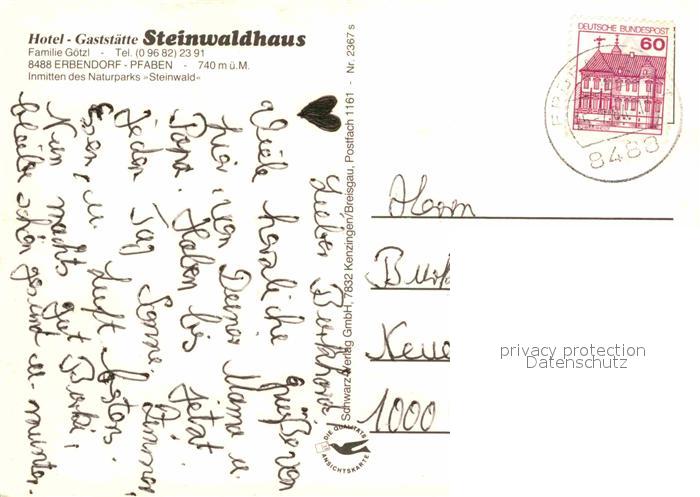 Hotel - Gaststätte Steinwaldhaus
Familie Götzl - Tel. (0 96 82) 23 91
8488 ERBENDORF - PFABEN - 740 m ü.M.
Inmitten des Naturparks »Steinwald«
Lieber Burkhard
Viele herzliche Grüße von
hier von Deiner Mama u.
Papa. Haben bis jetzt
jeden Tag Sonne. Zimmer,
Essen, u. Luft bestens.
Nun machs gut Burki,
bleibe schön gesund u. munter.
Schwarz-Verlag GmbH, 7832 Kenzingen/Breisgau, Postfach 1161 - Nr. 2367 s
DIE QUALITÄTS
ANSICHTSKARTE
DEUTSCHE BUNDESPOST
60
8488
Herrn
Burk
1000
privacy protection
Datenschutz